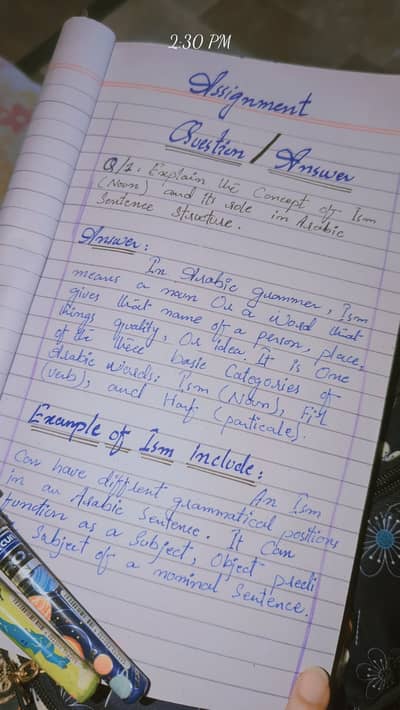 2:30 PM
Assignment
Question / Answer
Q/1. Explain the Concept of Ism
(Noun) and Its role in Arabic
Sentence Structure.
Answer:
In Arabic grammer, Ism
means a noun Or a Word that
gives that name of a person, place,
things quality, Or idea, It is One
of the thee basic Categories of
Arabic words: Ism (Noun), Fi'l
(verb), and Harf (particale).
Example of Ism Include:
An Ism
Can have diffrent grammatical positions
in an Arabic Sentence. It Can
function as a Subject, Object predi
Subject of a nominal Sentence.